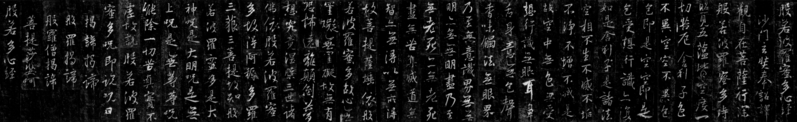 般若多心經
沙門玄奘奉詔譯
觀自在菩薩行深
般若波羅蜜多時
照見五蘊皆空度一
切苦厄舍利子色
不異空空不異色
色即是空空即是
色受想行識亦復
如是舍利子是諸法
空相不生不滅不垢
不淨不增不減是
故空中無色無受
想行識無眼耳鼻
舌身意無色聲
香味觸法無眼界
乃至無意識界無無
明亦無無明盡乃至
無老死亦無老死
盡無苦集滅道無
智亦無得以無所得
故菩提薩埵依般
若波羅蜜多故心無
罣礙無罣礙故無有
恐怖遠離顛倒夢
想究竟涅槃三世諸
佛依般若波羅蜜
多故得阿耨多羅
三藐三菩提故知般
若波羅蜜多是大
神咒是大明咒是無
上咒是無等等咒
能除一切苦真實不
虛故說般若波羅
蜜多咒即說咒曰
揭諦揭諦
般羅揭諦
般羅僧揭諦
菩提莎婆呵
般若多心經